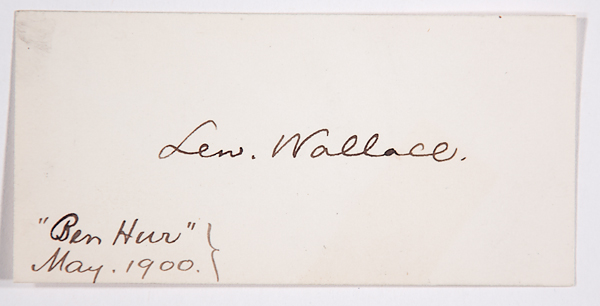 Lew. Wallace.
"Ben Hur" }
May. 1900.